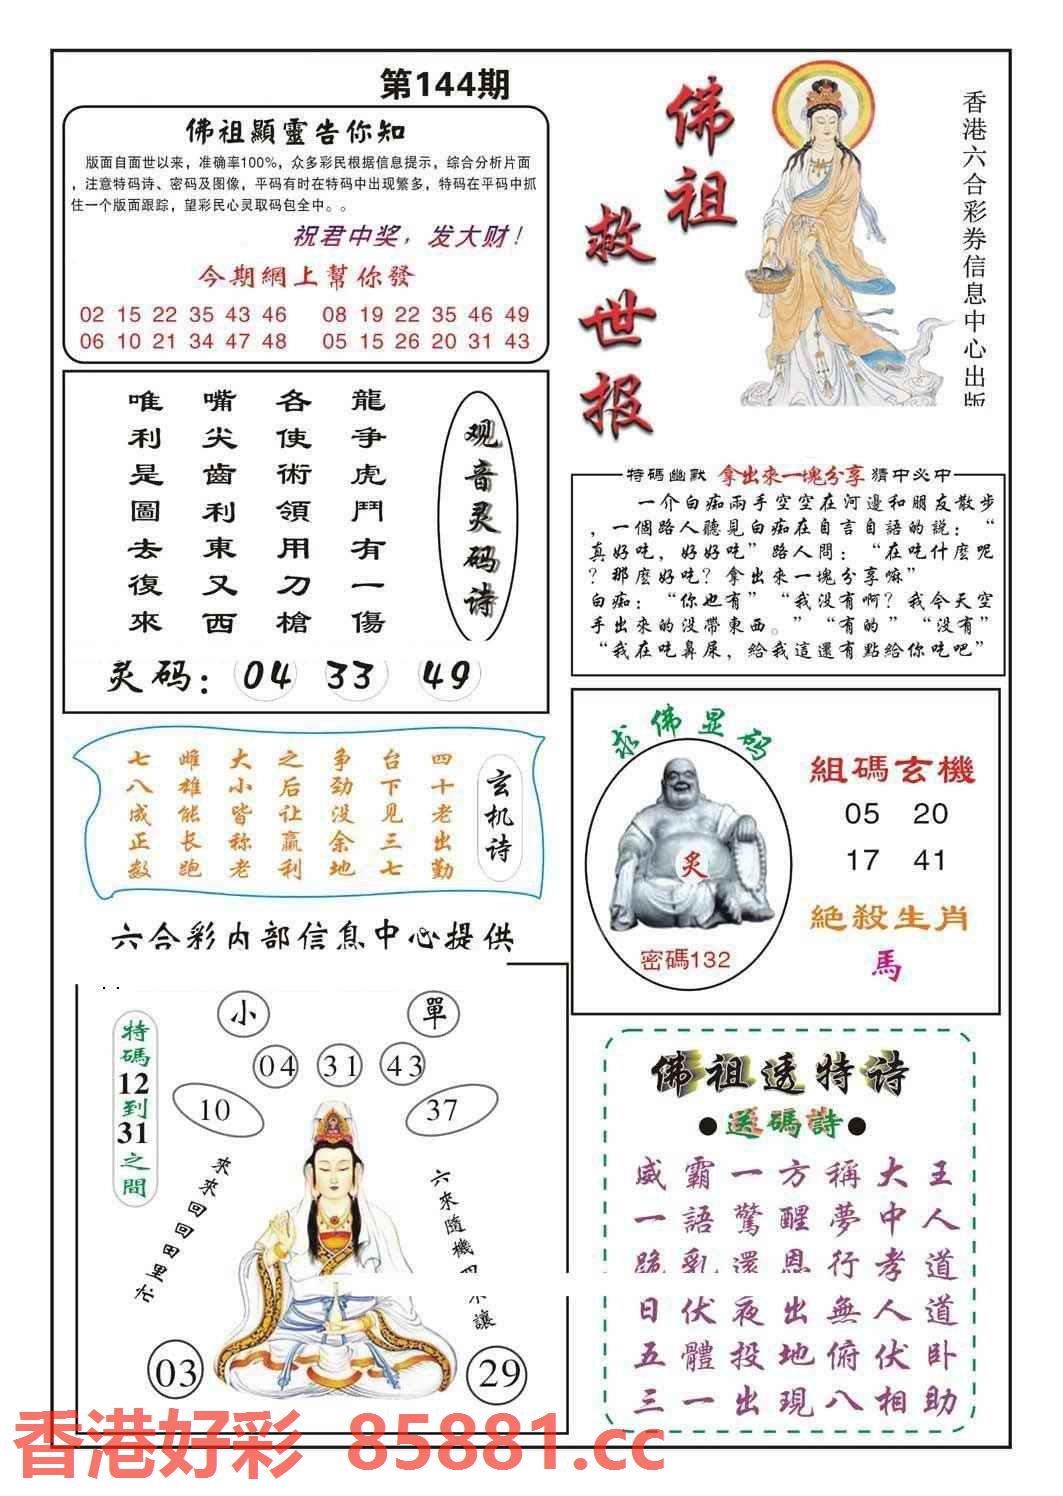 第144期
佛祖顯靈告你知
版面自面世以来，准确率100%，众多彩民根据信息提示，综合分析片面
，注意特码诗、密码及图像，平码有时在特码中出现繁多，特码在平码中抓
住一个版面跟踪，望彩民心灵取码包全中。。
祝君中奖，发大财！
今期網上幫你發
02 15 22 35 43 46 08 19 22 35 46 49
06 10 21 34 47 48 05 15 26 20 31 43
佛祖
救世报
香港六合彩券信息中心出版
观音灵码诗
龍争虎鬥有一傷
各使術領用刀槍
嘴尖齒利東又西
唯利是圖去復來
灵码：04 33 49
特碼幽默 拿出來一塊分享 猜中必中
一个白痴兩手空空在河邊和朋友散步
，一個路人聽見白痴在自言自語的説：“
真好吃，好好吃”路人問：“在吃什麽呢
？那麽好吃？拿出來一塊分享嘛”
白痴：“你也有”“我没有啊？我今天空
手出來的没帶東西。”“有的”“没有”
“我在吃鼻屎，給我這還有點給你吃吧”
玄机诗
四十老出勤
台下见三七
争劲没余地
之后让赢利
大小皆称老
雌雄能长跑
七八成正数
六合彩内部信息中心提供
求佛显码
灵
密碼132
組碼玄機
05 20
17 41
絶殺生肖
馬
特碼12到31之間
小 單
04 31 43
10 37
來來回回田里忙
六來隨機四不讓
03 29
佛祖透特诗
●送碼詩●
威霸一方稱大王
一語驚醒夢中人
跪乳還恩行孝道
日伏夜出無人道
五體投地俯伏卧
三一出現八相助
香港好彩 85881.cc